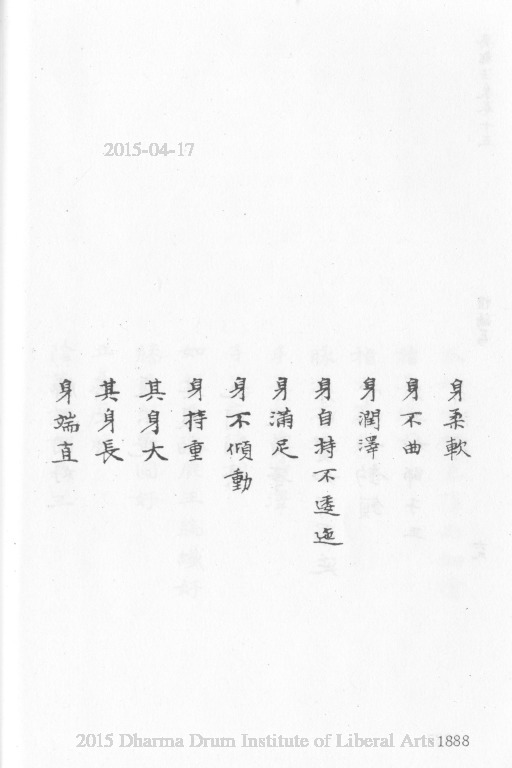 2015-04-17
身柔軟
身不曲
身潤澤
身自持不逶迤
身滿足
身不傾動
身持重
其身大
其身長
身端直
2015 Dharma Drum Institute of Liberal Arts
1888